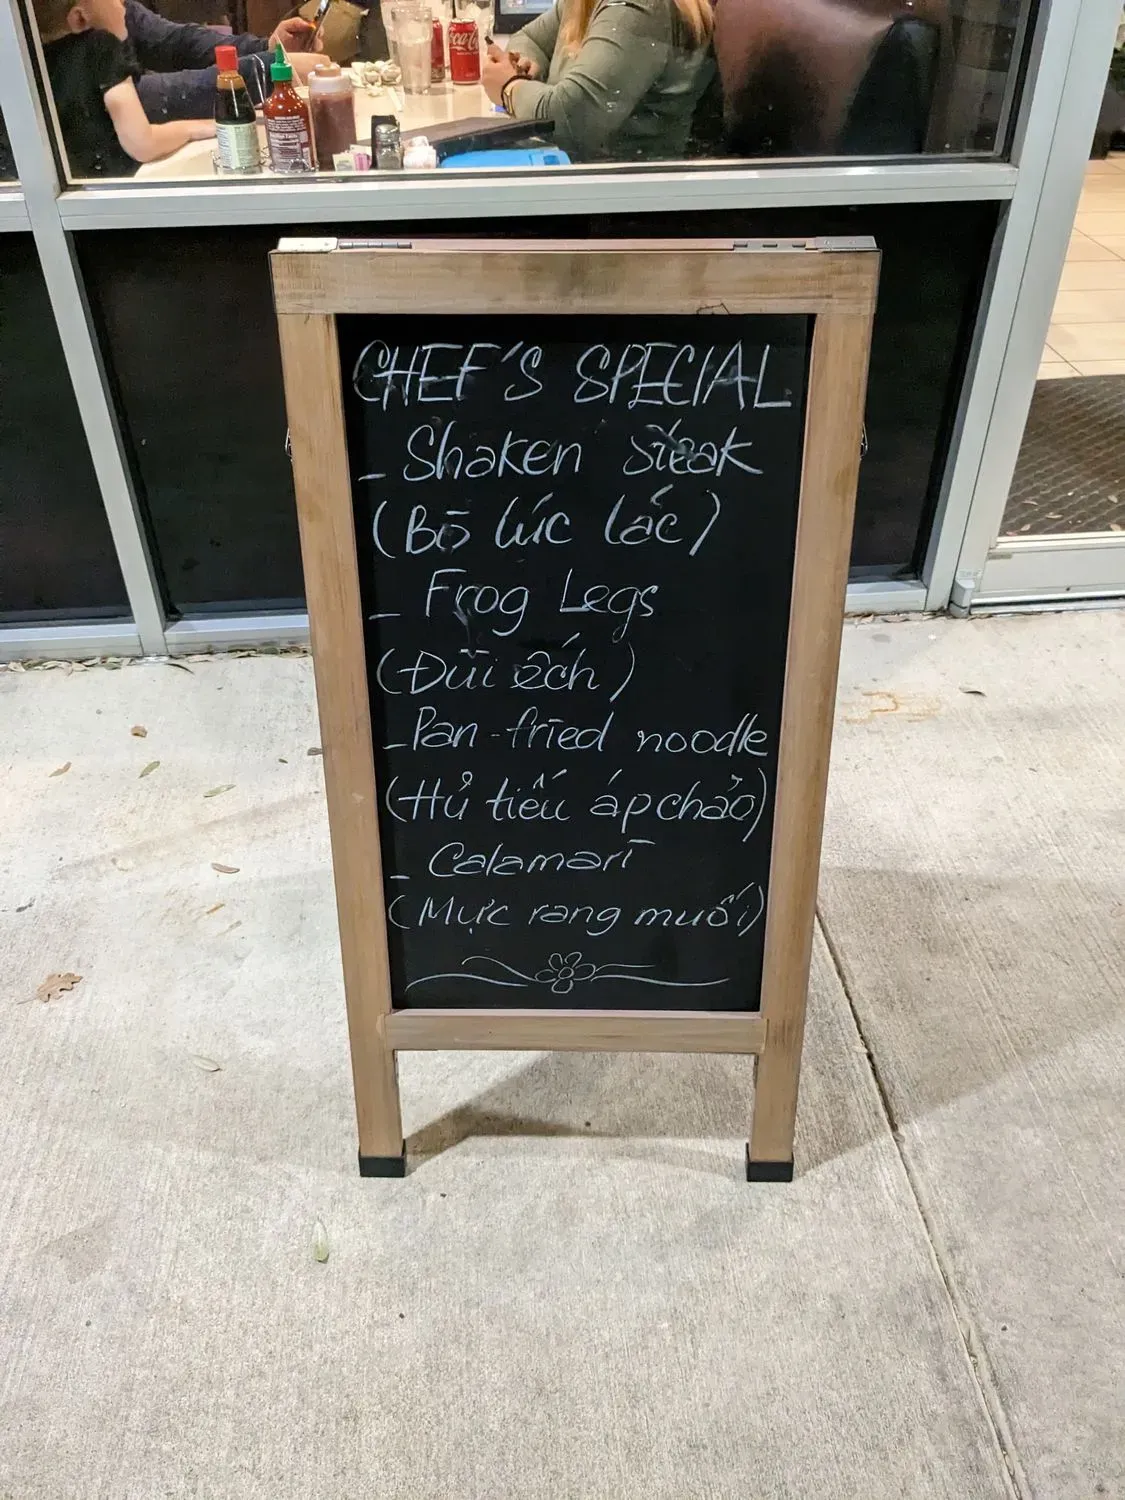 Coca-Cola
CHEF'S SPECIAL
- Shaken steak
(Bò lúc lắc)
- Frog Legs
(Đùi ếch)
- Pan-fried noodle
(Hủ tiếu áp chảo)
- Calamari
(Mực rang muối)